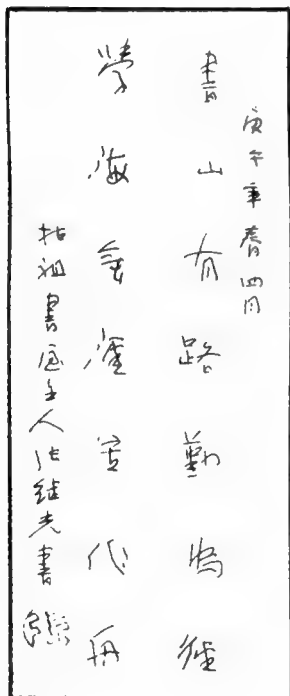 庚午年春四月
書山有路勤為徑
學海無涯苦作舟
書屋主人 繼光書